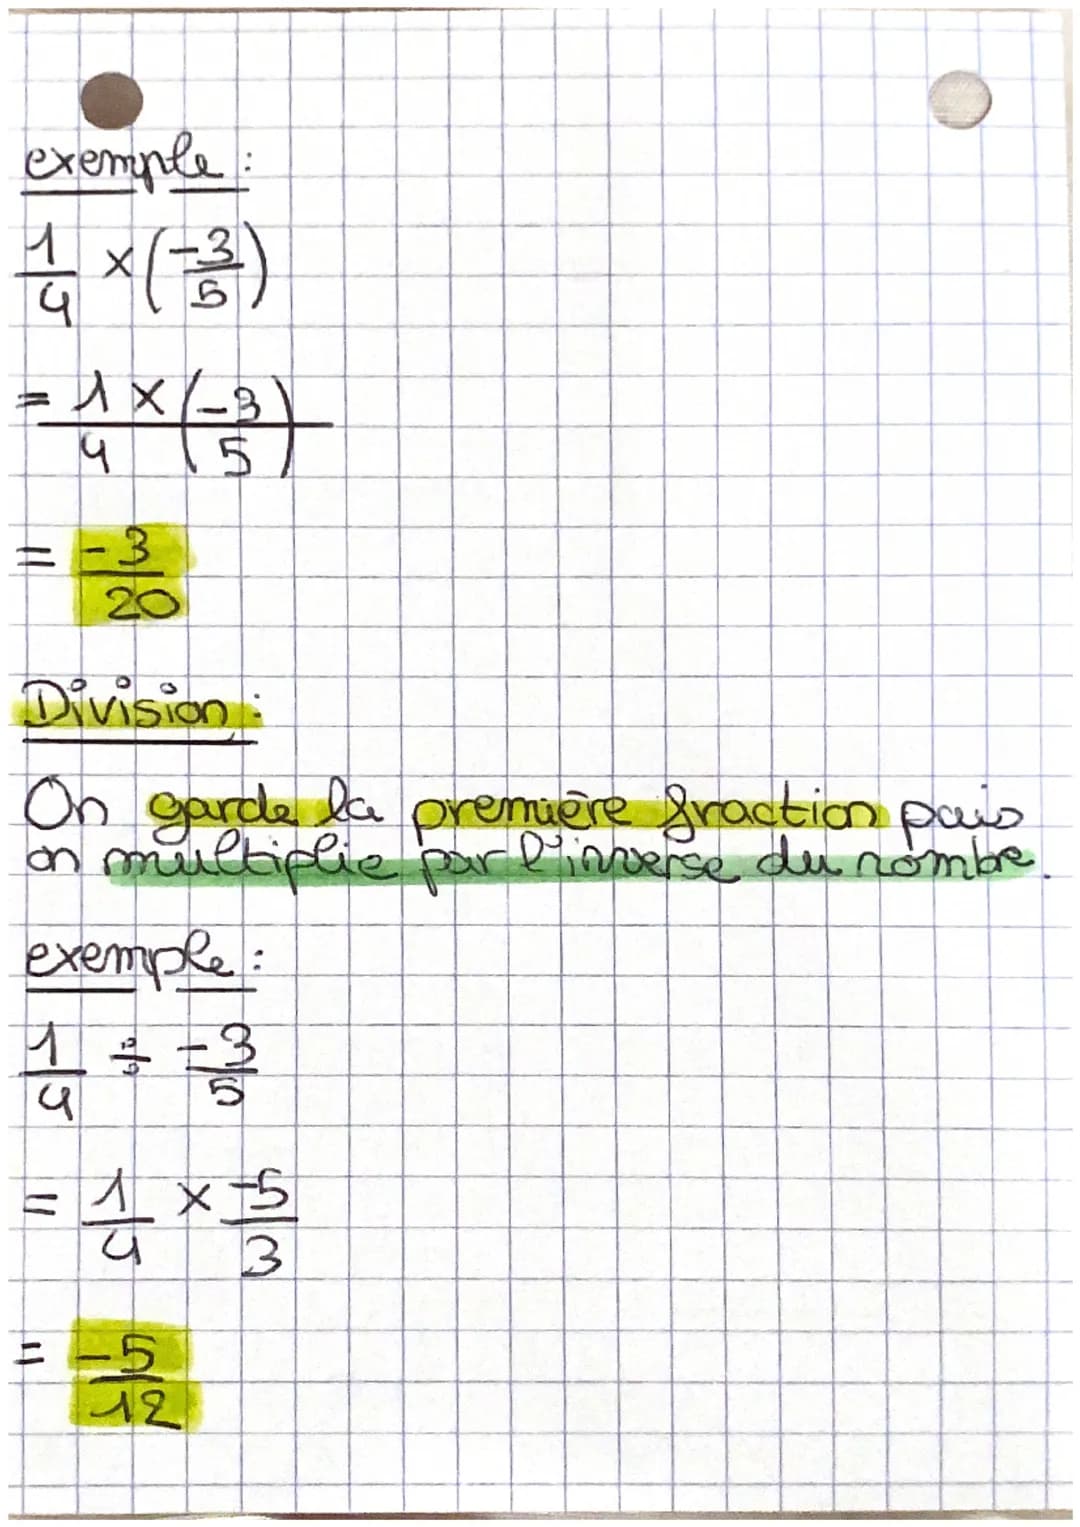 exemple :
1/4 × (-3/5)
= 1 × (-3) / 4 (5)
= -3/20
Division :
On garde la première fraction puis
on multiplie par l'inverse du nombre.
exemple :
1/4 ÷ -3/5
= 1/4 × -5/3
= -5/12